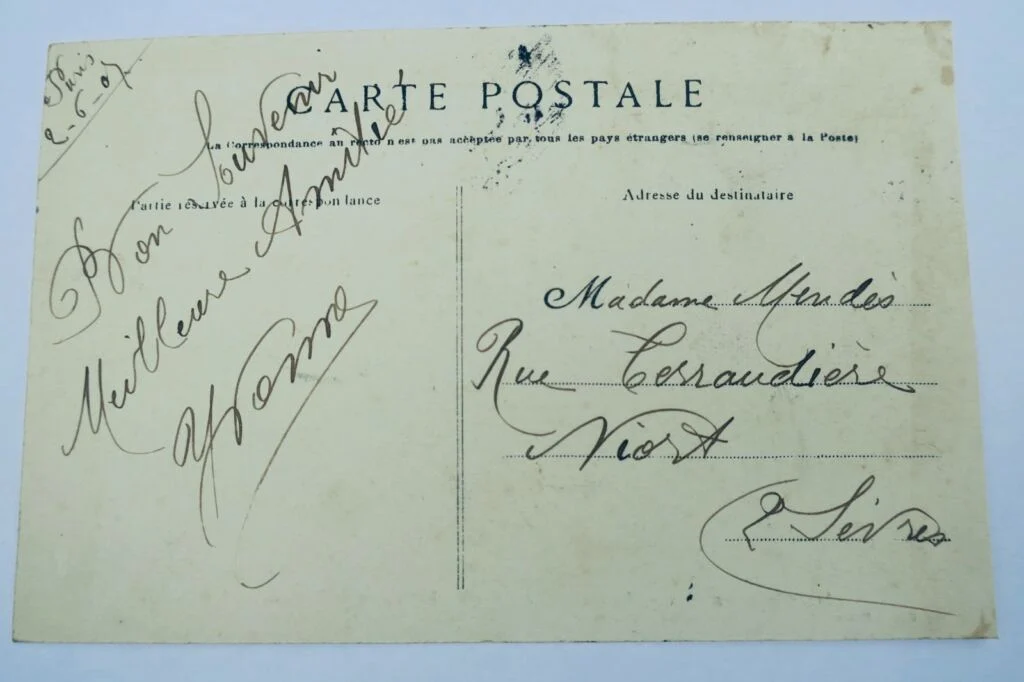 Paris
2-6-07
CARTE POSTALE
La Correspondance au recto n'est pas acceptée par tous les pays étrangers (se renseigner à la Poste)
Partie réservée à la correspondance
Adresse du destinataire
Bon Souvenir
Meilleure Amitié
Yvonne
Madame Mendès
Rue Terraudière
Niort
2 Sèvres